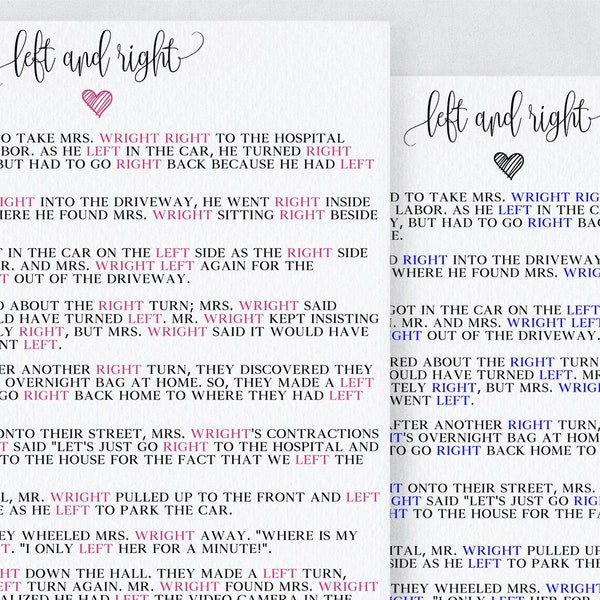 left and right
O TAKE MRS. WRIGHT RIGHT TO THE HOSPITAL
ABOR. AS HE LEFT IN THE CAR, HE TURNED RIGHT
BUT HAD TO GO RIGHT BACK BECAUSE HE HAD LEFT
IGHT INTO THE DRIVEWAY, HE WENT RIGHT INSIDE
HERE HE FOUND MRS. WRIGHT SITTING RIGHT BESIDE
T IN THE CAR ON THE LEFT SIDE AS THE RIGHT SIDE
R. AND MRS. WRIGHT LEFT AGAIN FOR THE
T OUT OF THE DRIVEWAY.
D ABOUT THE RIGHT TURN; MRS. WRIGHT SAID
LD HAVE TURNED LEFT. MR. WRIGHT KEPT INSISTING
LY RIGHT, BUT MRS. WRIGHT SAID IT WOULD HAVE
ENT LEFT.
ER ANOTHER RIGHT TURN, THEY DISCOVERED THEY
OVERNIGHT BAG AT HOME. SO, THEY MADE A LEFT
GO RIGHT BACK HOME TO WHERE THEY HAD LEFT
ONTO THEIR STREET, MRS. WRIGHT'S CONTRACTIONS
T SAID "LET'S JUST GO RIGHT TO THE HOSPITAL AND
TO THE HOUSE FOR THE FACT THAT WE LEFT THE
L, MR. WRIGHT PULLED UP TO THE FRONT AND LEFT
E AS HE LEFT TO PARK THE CAR.
EY WHEELED MRS. WRIGHT AWAY. "WHERE IS MY
T. "I ONLY LEFT HER FOR A MINUTE!".
GHT DOWN THE HALL. THEY MADE A LEFT TURN,
EFT TURN AGAIN. MR. WRIGHT FOUND MRS. WRIGHT
ALIZED HE HAD LEFT THE VIDEO CAMERA IN THE
left and right
D TO TAKE MRS. WRIGHT RIG
LABOR. AS HE LEFT IN THE C
Y, BUT HAD TO GO RIGHT BAC
E.
D RIGHT INTO THE DRIVEWAY
WHERE HE FOUND MRS. WRIG
GOT IN THE CAR ON THE LEFT
. MR. AND MRS. WRIGHT LEFT
GHT OUT OF THE DRIVEWAY.
RED ABOUT THE RIGHT TURN
OULD HAVE TURNED LEFT. MR
TELY RIGHT, BUT MRS. WRIG
WENT LEFT.
AFTER ANOTHER RIGHT TURN,
T'S OVERNIGHT BAG AT HOM
O GO RIGHT BACK HOME TO
T ONTO THEIR STREET, MRS.
GHT SAID "LET'S JUST GO RIG
HT TO THE HOUSE FOR THE FA
ITAL, MR. WRIGHT PULLED UP
SIDE AS HE LEFT TO PARK TH
THEY WHEELED MRS. WRIGHT